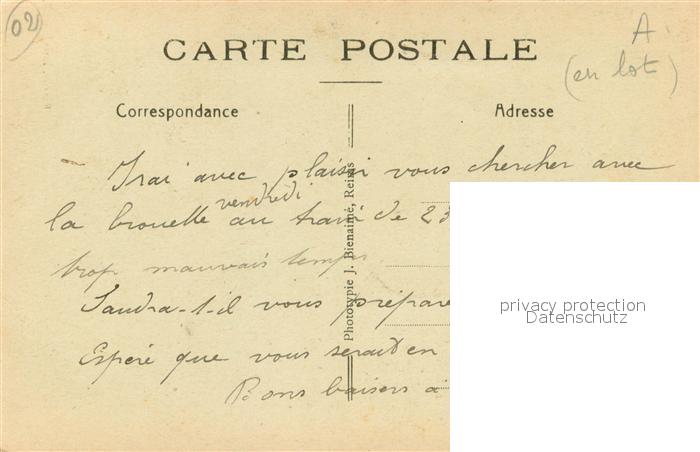 02
A.
(en lot)
CARTE POSTALE
Correspondance
Adresse
Irai avec plaisir vous chercher avec
vendredi
la brouette au train de 23
trop mauvais temps.
Faudra-t-il vous prépare
Espère que vous serait en
Bons baisers à
Phototypie J. Bienaimé, Reims
privacy protection
Datenschutz